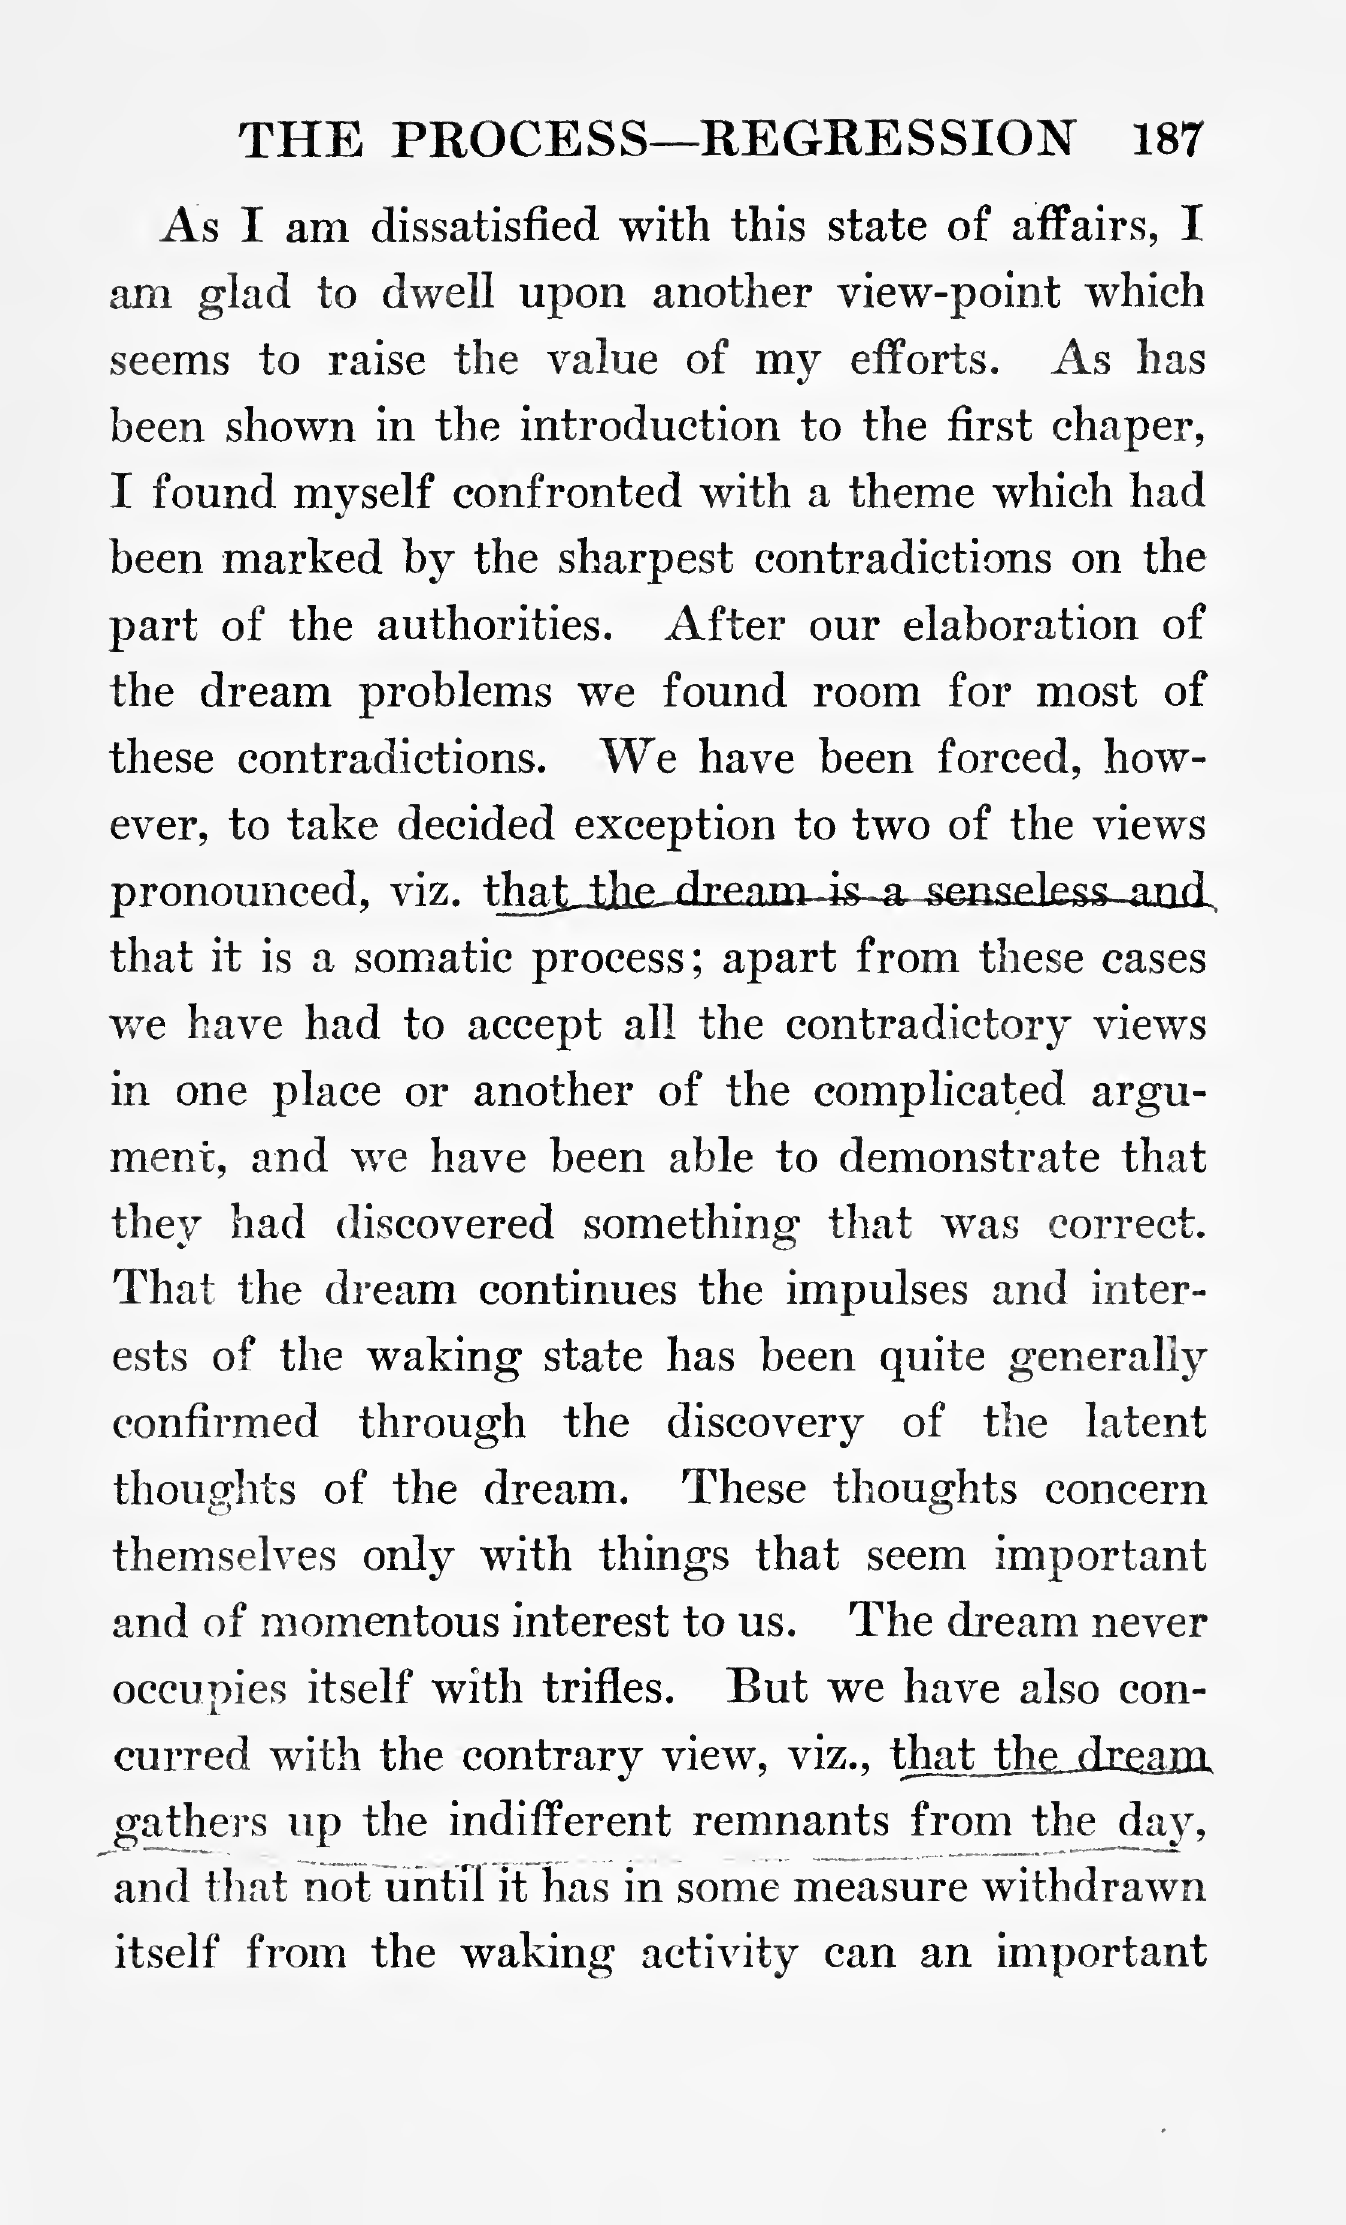 THE PROCESS—REGRESSION 187
As I am dissatisfied with this state of affairs, I
am glad to dwell upon another view-point which
seems to raise the value of my efforts. As has
been shown in the introduction to the first chaper,
I found myself confronted with a theme which had
been marked by the sharpest contradictions on the
part of the authorities. After our elaboration of
the dream problems we found room for most of
these contradictions. We have been forced, how-
ever, to take decided exception to two of the views
pronounced, viz. that the dream is a senseless and
that it is a somatic process; apart from these cases
we have had to accept all the contradictory views
in one place or another of the complicated argu-
ment, and we have been able to demonstrate that
they had discovered something that was correct.
That the dream continues the impulses and inter-
ests of the waking state has been quite generally
confirmed through the discovery of the latent
thoughts of the dream. These thoughts concern
themselves only with things that seem important
and of momentous interest to us. The dream never
occupies itself with trifles. But we have also con-
curred with the contrary view, viz., that the dream
gathers up the indifferent remnants from the day,
and that not until it has in some measure withdrawn
itself from the waking activity can an important